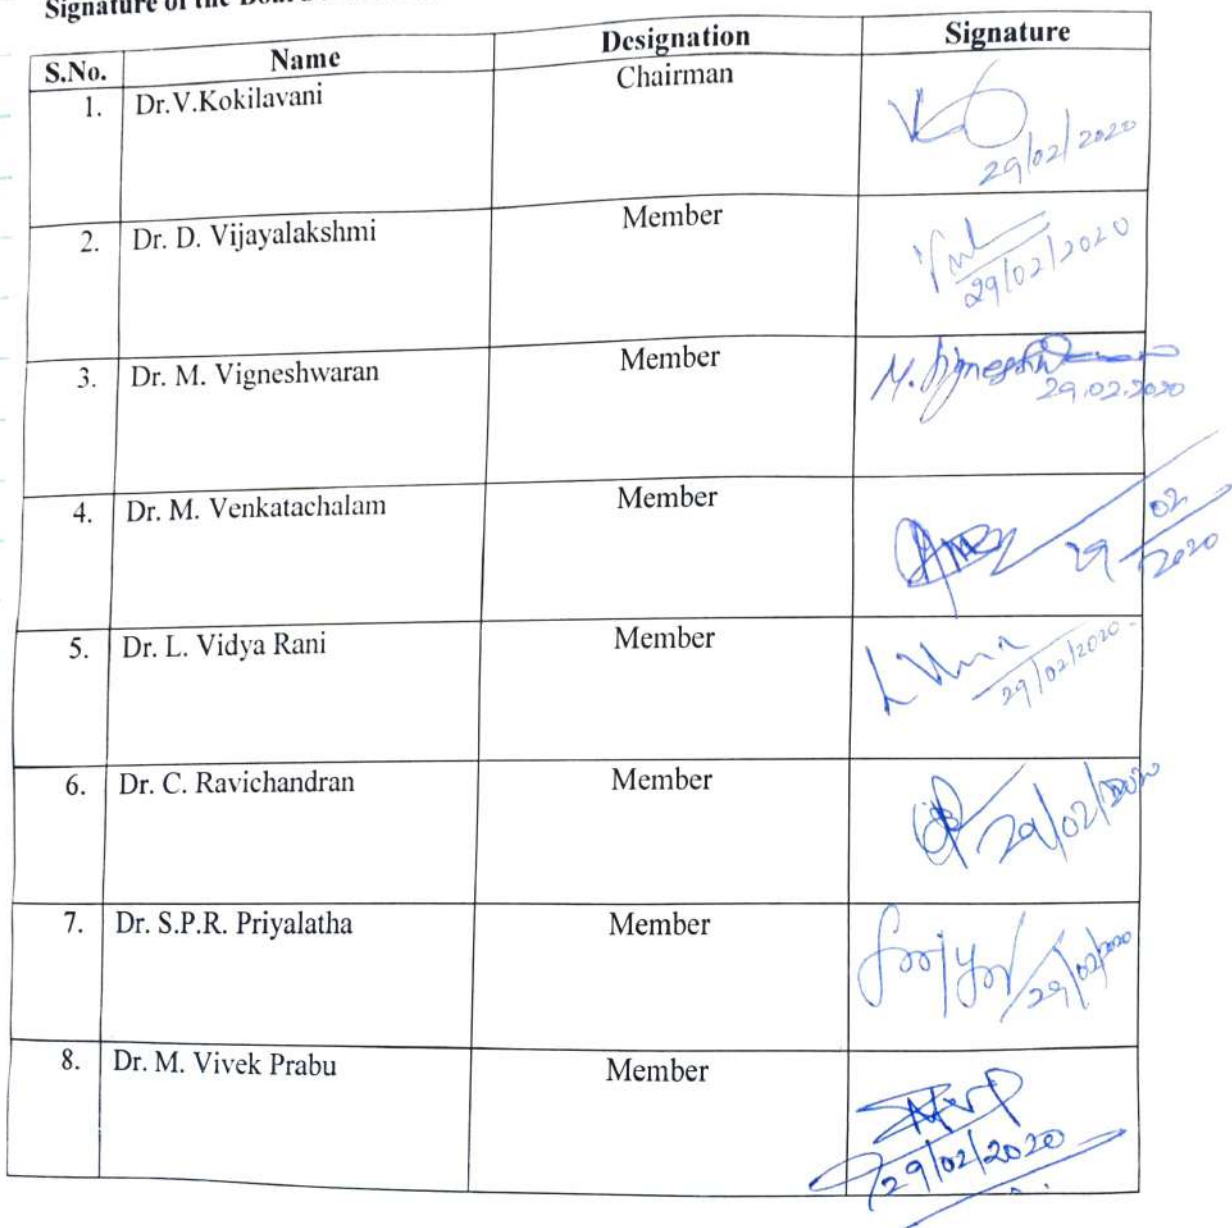 Signature of the
S.No. Name Designation Signature
1. Dr.V.Kokilavani Chairman
29/02/2020
2. Dr. D. Vijayalakshmi Member
29/02/2020
3. Dr. M. Vigneshwaran Member M. Vignesh
29.02.2020
4. Dr. M. Venkatachalam Member
29 02
2020
5. Dr. L. Vidya Rani Member
29/02/2020
6. Dr. C. Ravichandran Member
29/02/2020
7. Dr. S.P.R. Priyalatha Member
29/02/2020
8. Dr. M. Vivek Prabu Member
29/02/2020